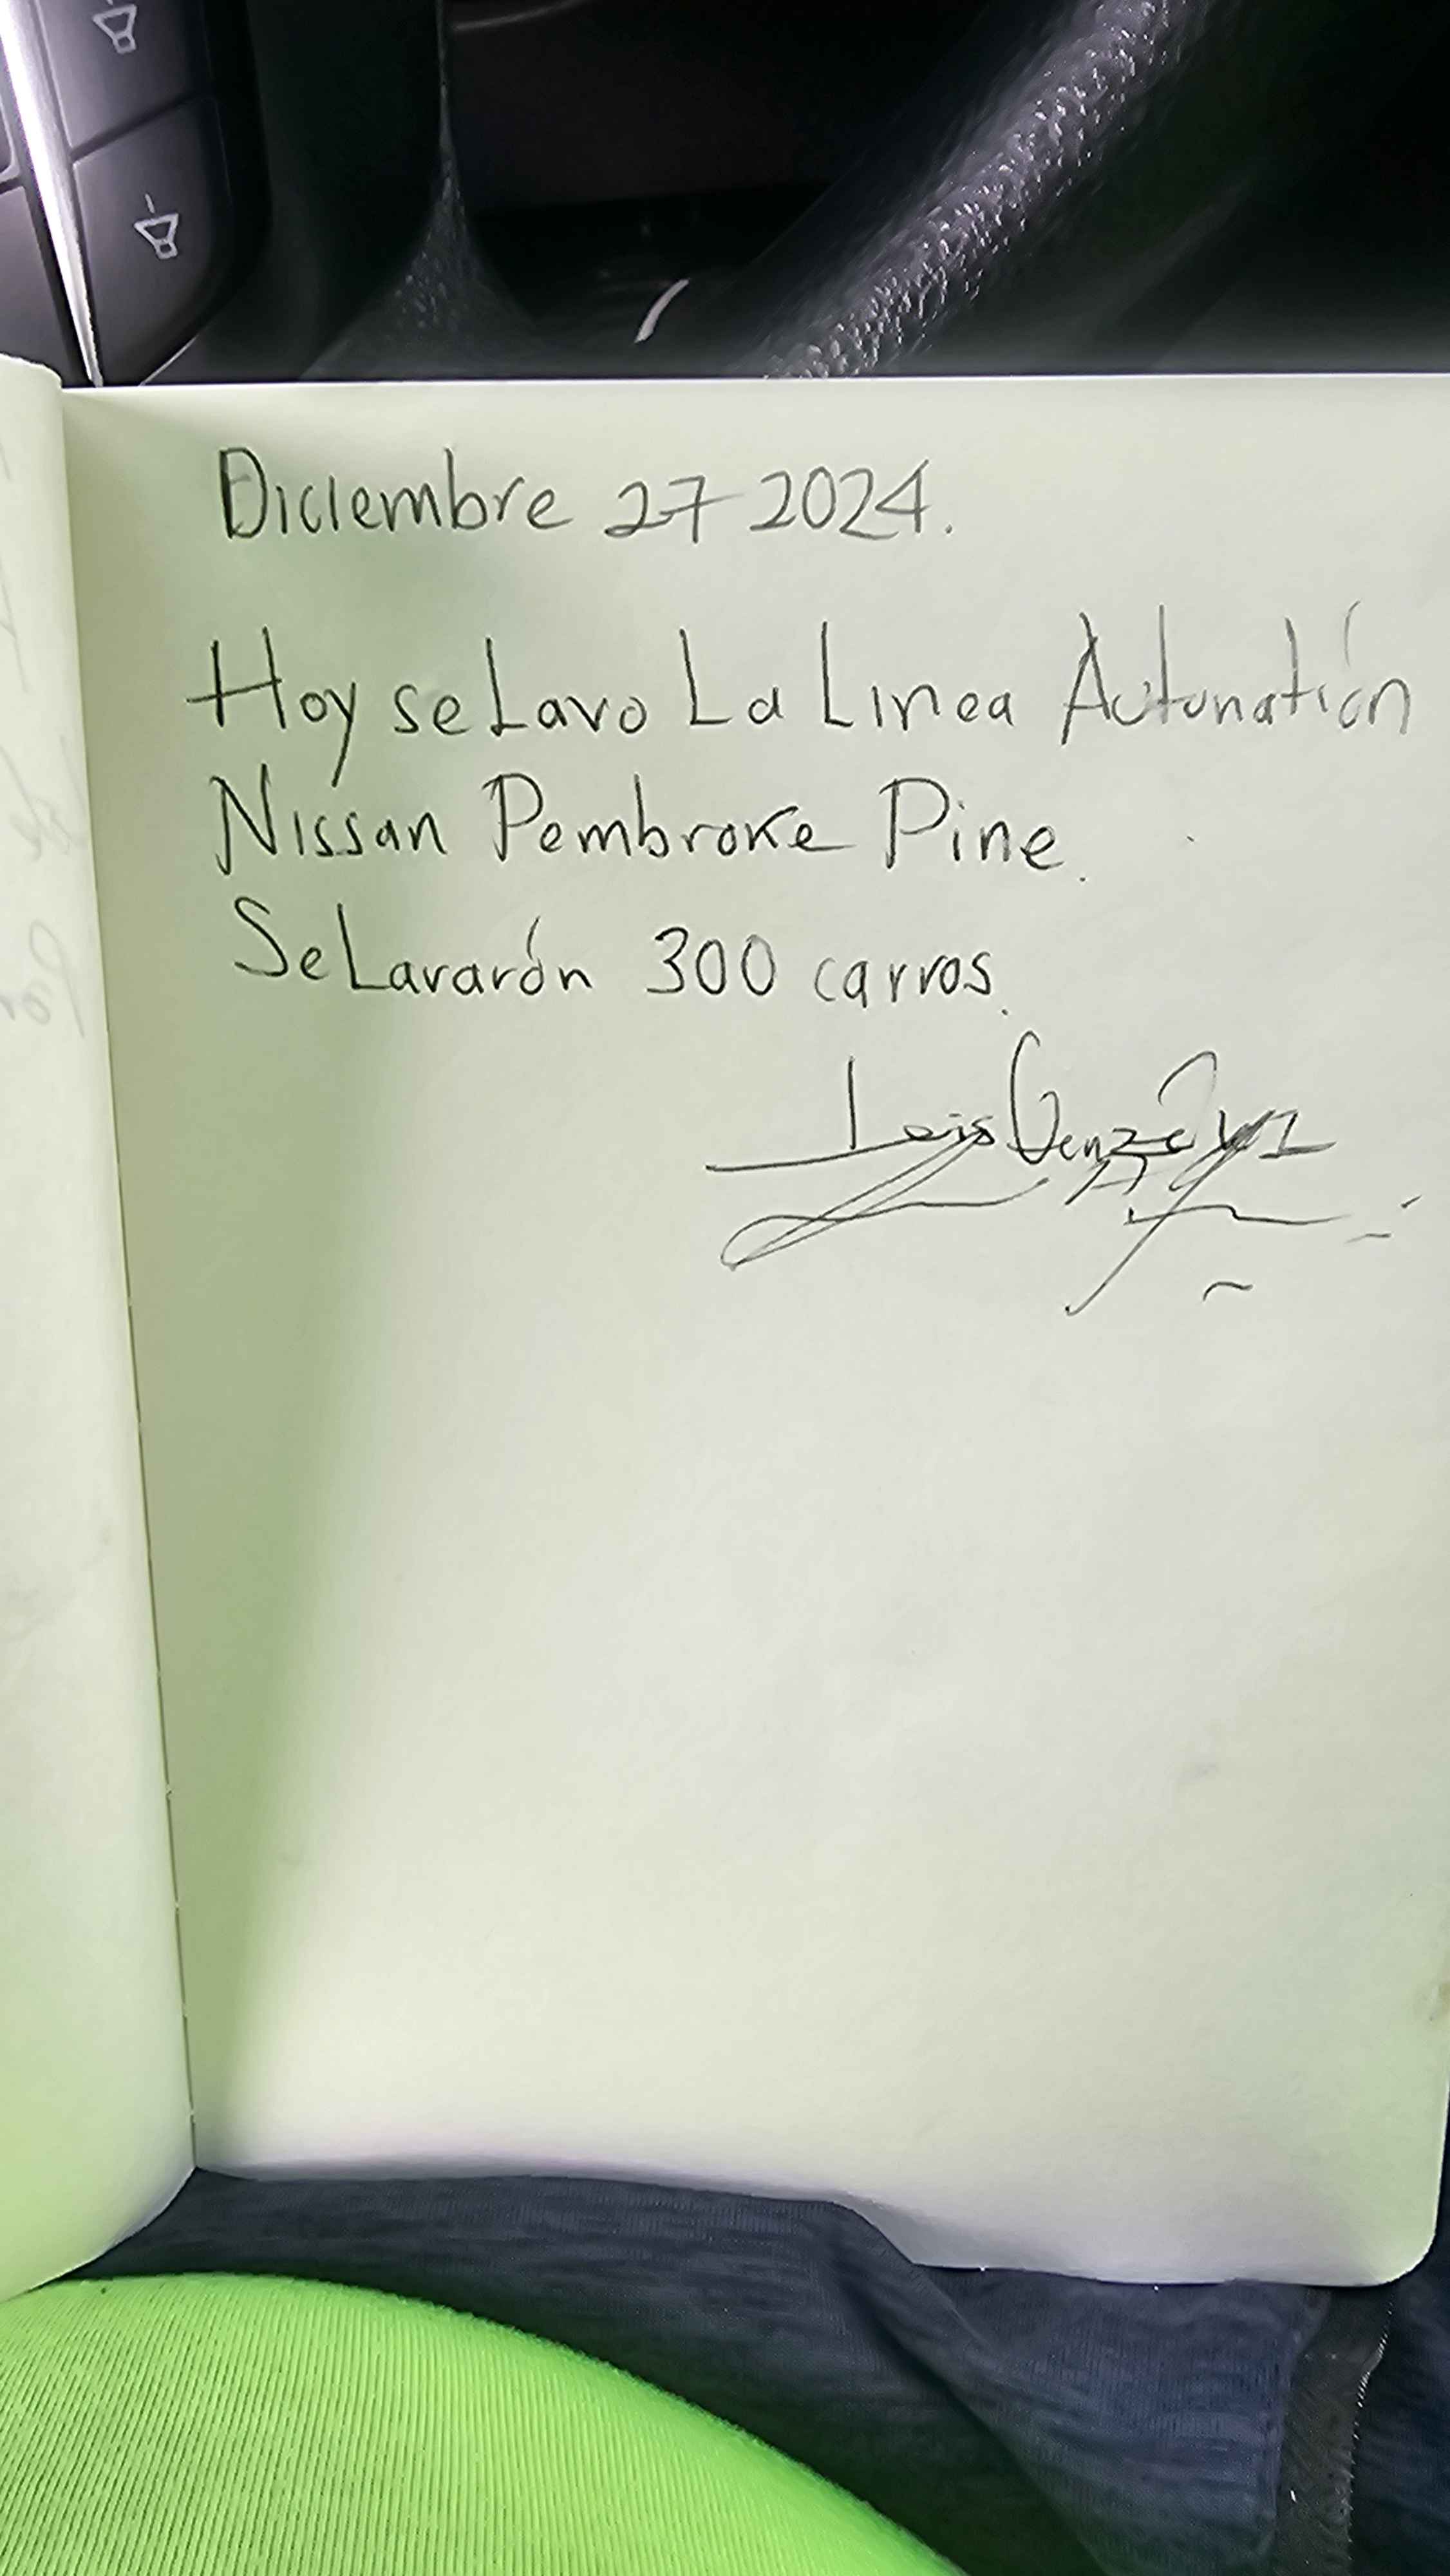 Diciembre 27 2024.
Hoy se Lavo La Linea Autonatión
Nissan Pembroke Pine.
Se Lavarón 300 carros.
Luis Gonzalez